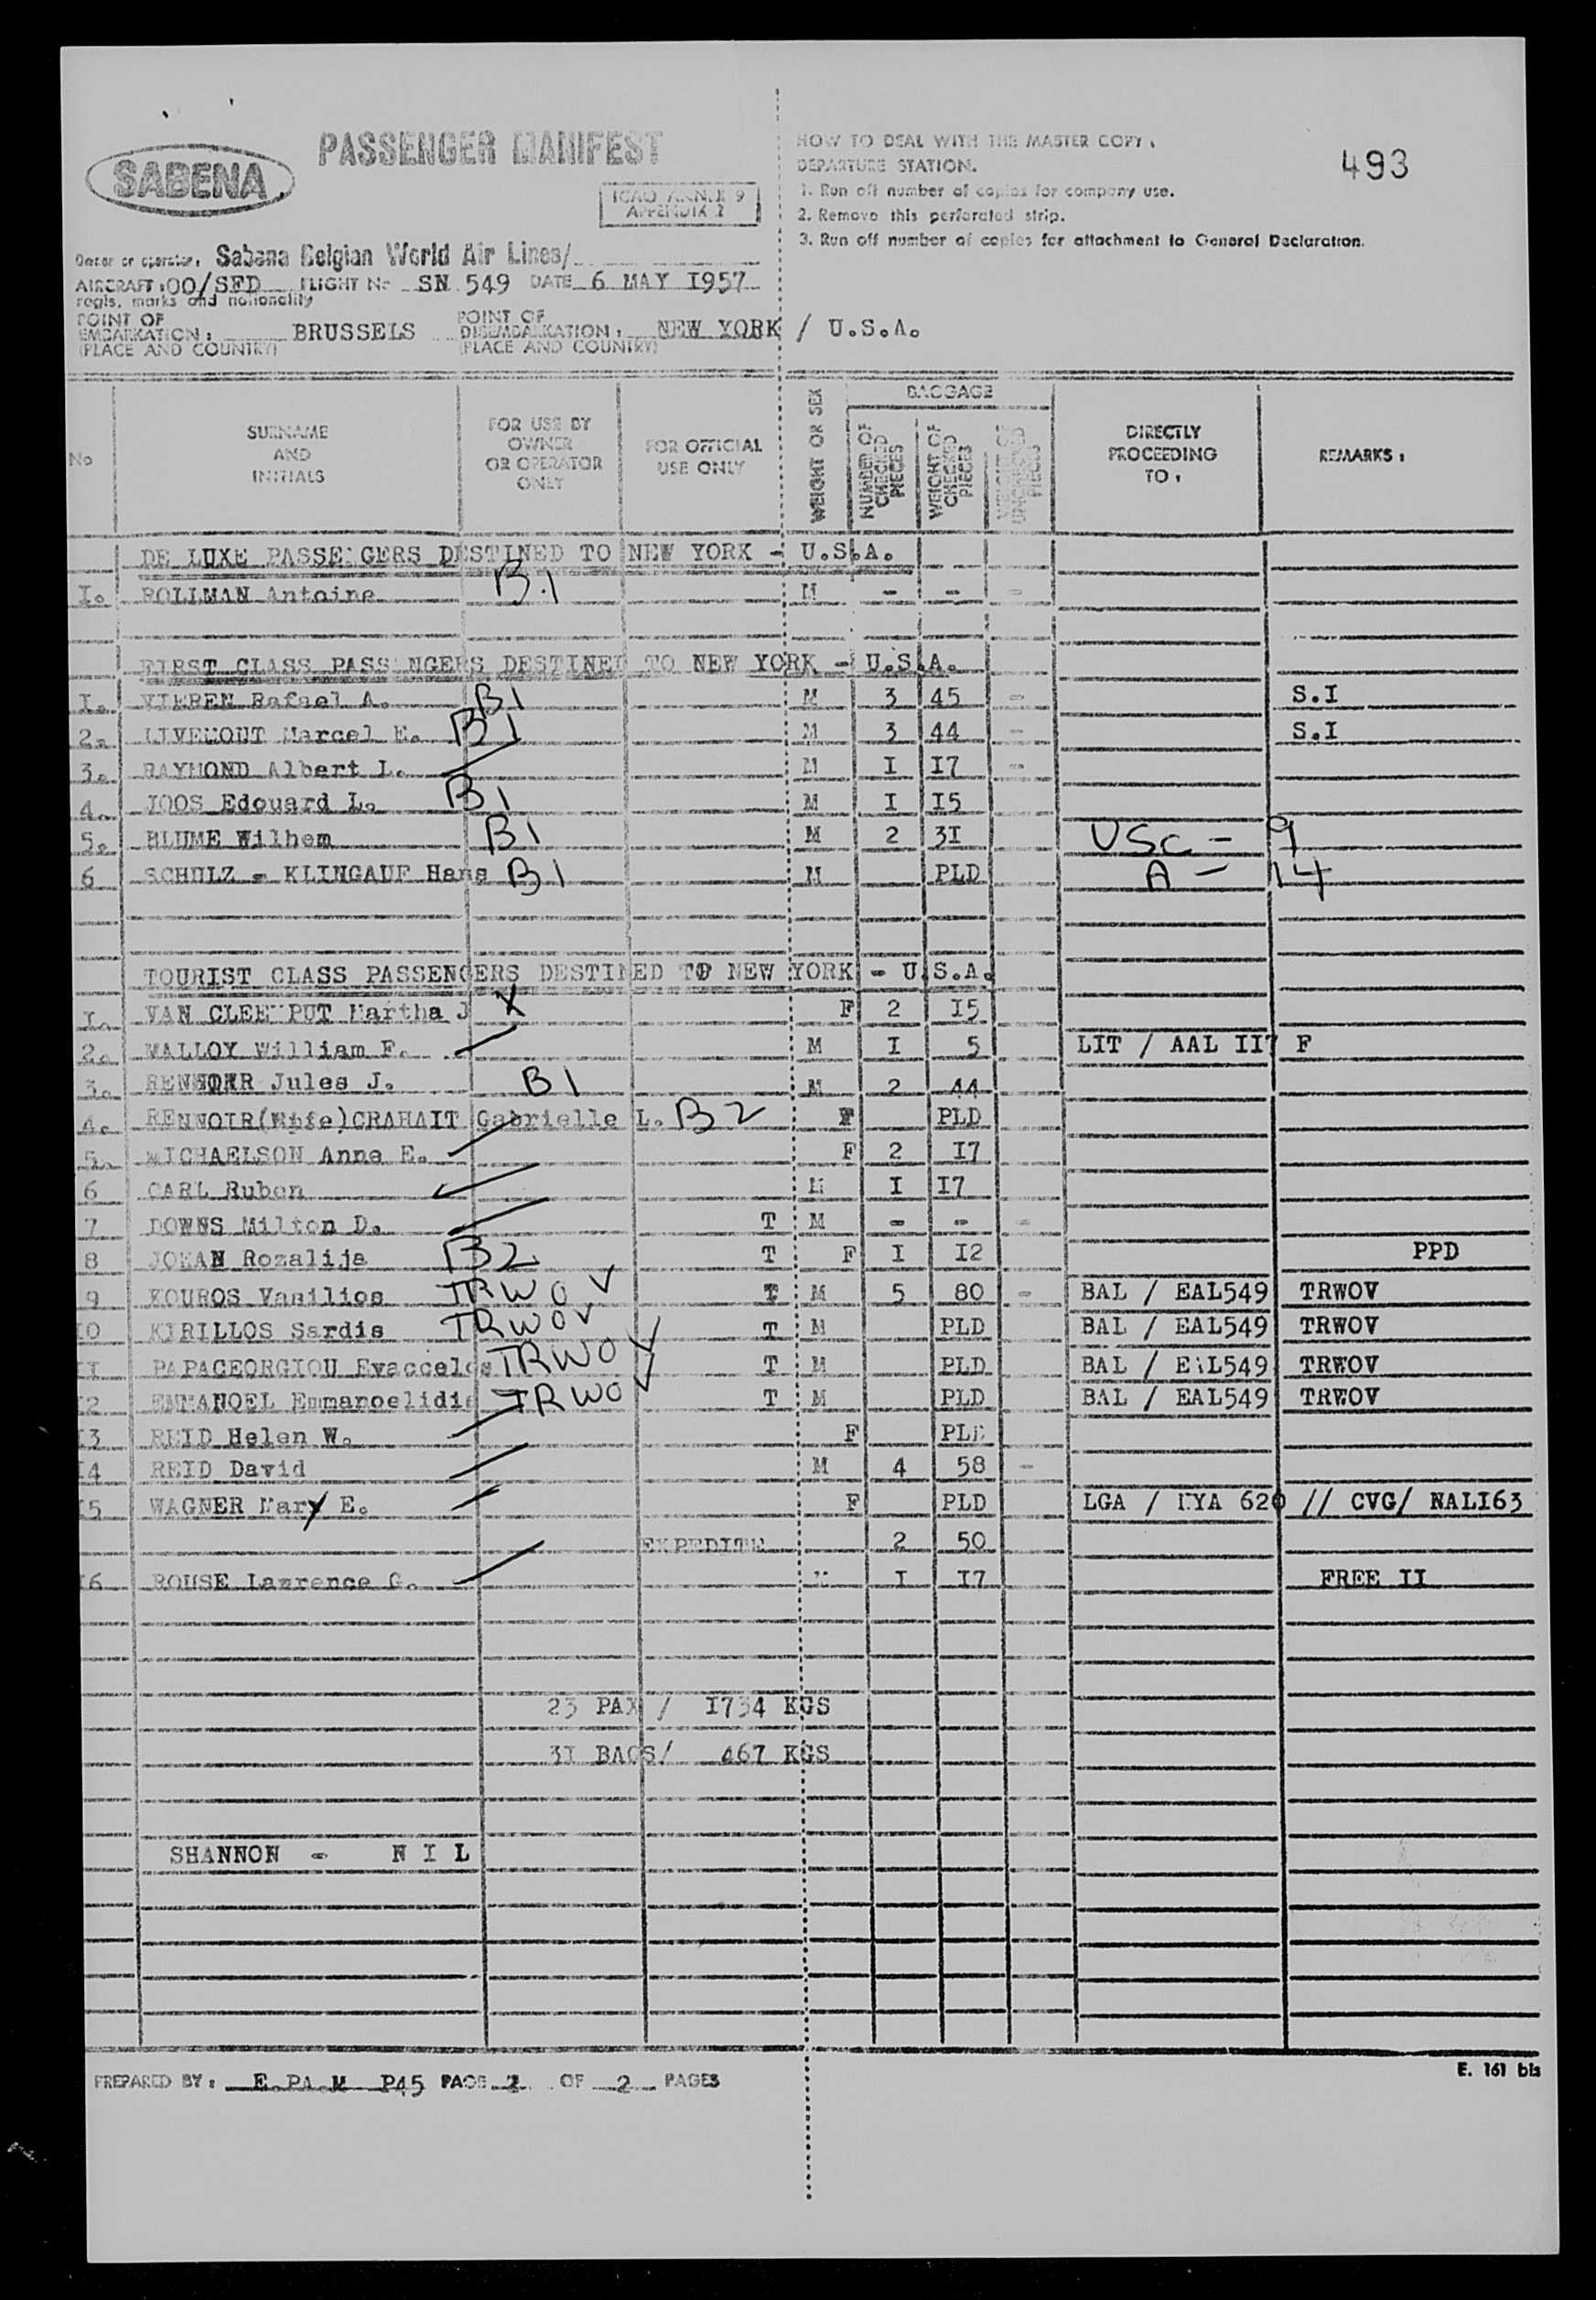 PASSENGER MANIFEST
SABENA
ICAO ANNEX 9
APPENDIX 2
HOW TO DEAL WITH THE MASTER COPY :
DEPARTURE STATION.
1. Run off number of copies for company use.
2. Remove this perforated strip.
3. Run off number of copies for attachment to General Declaration.
493
Owner or operator: Sabena Belgian World Air Lines/
AIRCRAFT : OO/SFD FLIGHT No SN 549 DATE 6 MAY I957
regis. marks and nationality
POINT OF EMBARKATION : BRUSSELS POINT OF DISEMBARKATION : NEW YORK / U.S.A.
(PLACE AND COUNTRY) (PLACE AND COUNTRY)
No SURNAME AND INITIALS FOR USE BY OWNER OR OPERATOR ONLY FOR OFFICIAL USE ONLY WEIGHT OR SEX BAGGAGE NUMBER OF CHECKED PIECES WEIGHT OF CHECKED PIECES WEIGHT OF UNCHECKED PIECES DIRECTLY PROCEEDING TO : REMARKS :
DE LUXE PASSENGERS DESTINED TO NEW YORK - U.S.A.
I. Antoine B.1 M - - -
FIRST CLASS PASSENGERS DESTINED TO NEW YORK - U.S.A.
I. VIEREN Rafael A. B1 M 3 45 - S.I
2. LIVEMONT Marcel E. B1 M 3 44 - S.I
3. RAYMOND Albert L. M I I7 -
4. JOOS Edouard L. B1 M I I5
5. BLUME Wilhem B1 M 2 3I USC - 9
6 SCHULZ - KLINGAUF Hans B1 M PLD A - 14
TOURIST CLASS PASSENGERS DESTINED TO NEW YORK - U.S.A.
I. VAN CLEEMPUT Martha J X F 2 I5
2. MALLOY William F. M I 5 LIT / AAL II7 F
3. Jules J. B1 M 2 44
4. RENNOIR CRAHAIT Gabrielle L. B2 F PLD
5. MICHAELSON Anne E. F 2 I7
6 CARL Ruben M I I7
7 DOWNS Milton D. T M - - -
8 Rozalija B2 T F I I2 PPD
9 KOUROS Vasilios TRWOV T M 5 80 - BAL / EAL549 TRWOV
I0 KIRILLOS Sardis TRWOV T M PLD BAL / EAL549 TRWOV
II PAPAGEORGIOU Evaccelos TRWOV T M PLD BAL / EAL549 TRWOV
I2 EMMANOEL Emmanoelidis TRWOV T M PLD BAL / EAL549 TRWOV
I3 REID Helen W. F PLD
I4 REID David M 4 58 -
I5 WAGNER Mary E. F PLD LGA / 620 // CVG/ NALI63
EXPEDITE 2 50
I6 ROUSE Lawrence G. M I I7 FREE II
23 PAX / I734 KGS
3I BAGS/ 467 KGS
SHANNON - N I L
PREPARED BY : E.PA.M P45 PAGE 2 OF 2 PAGES
E. 161 bis